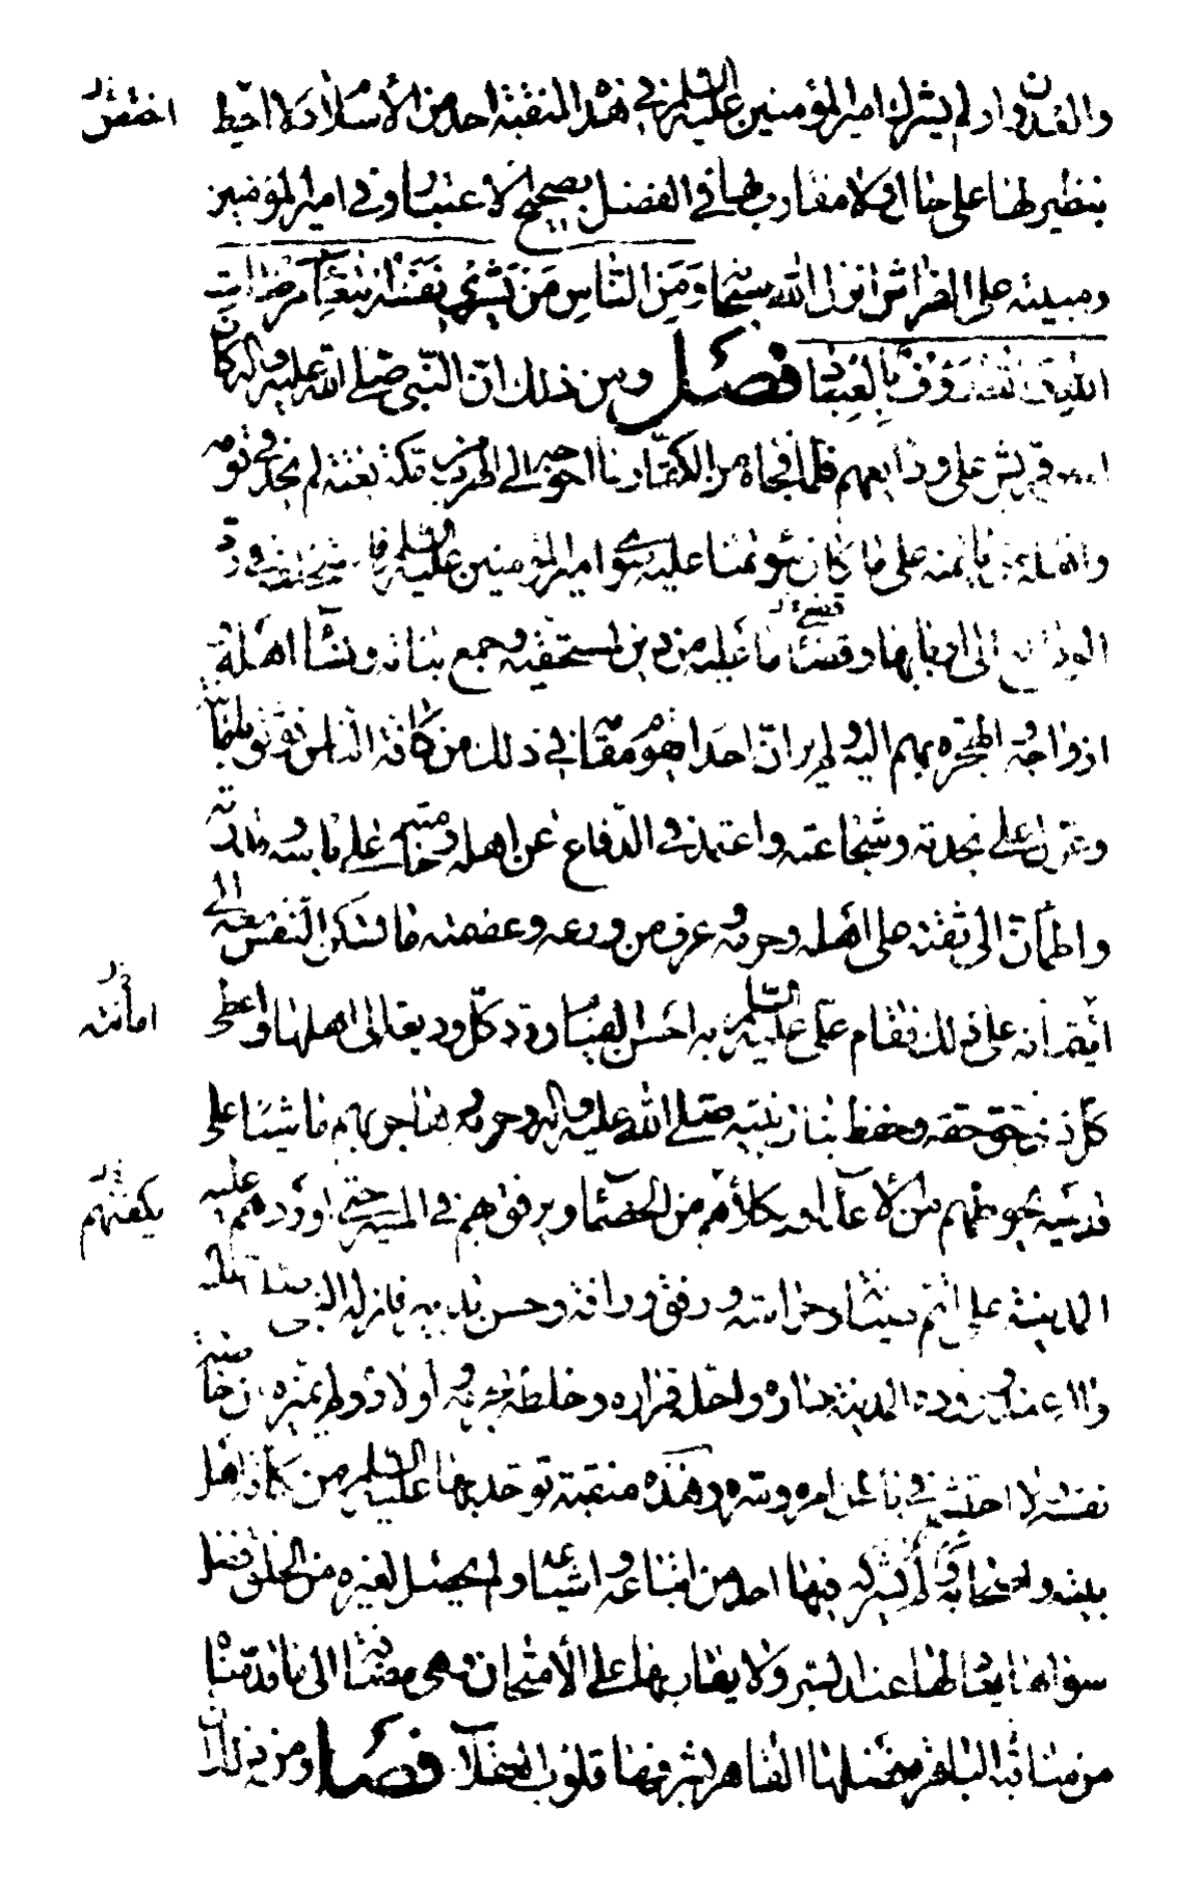 والعدوان ولم يشرك امير المؤمنين عليه السلم في هذه المنقبة احد من الأسلام ولا اختص
بنظير لها على حال ولا مقارب لها في الفضل بصحيح الاعتبار وفي امير المؤمنين
ومبيته على الفراش انزل الله سبحانه وَمِنَ النَّاسِ مَنْ يَشْرِي نَفْسَهُ ابْتِغَآءَ مَرْضَاتِ
اللهِ وَاللهُ رَؤُفٌ بِالْعِبَادِ فصل ومن ذلك انّ النّبي صلى الله عليه واله كان
قريش على ودايعهم فلما فجاه من الكفار ما احوجه الى الهرب من مكة بغتة لم يجد في قومه
واهله من يأتمنه على ما كان مؤتمنا عليه سوى امير المؤمنين عليه السلم فاستخلفه في ردّ
الودايع الى اربابها وقضاء ما عليه من دين لمستحقيه وجمع بناته ونساء اهله
ازواجه والهجرة بهم اليه ولم ير انّ احدا يقوم مقامه في ذلك من كافة الناس فوثق بامانته
وعوّل على نجدته وشجاعته واعتمد في الدّفاع عن اهله وحامته على باسه وقدرته
واطمأنّ الى ثقته على اهله وحرمه وعرف من ورعه وعصمته ما تسكن النّفس معه الى
ايتمانه على ذلك فقام علّى عليه السّلم به احسن القيام وردّ كلّ وديعة الى اهلها واعطى
امانته
كلّ ذي حقّ حقه وحفظ بنات نبيّه صلى الله عليه واله وحرمه وهاجر بهم ماشيا على
قدميه يحوطهم من الأعداء ويكلأهم من الخصماء ويرفق بهم في المسير حتى اوردهم عليه
يكفيهم
المدينة على اتم صيانة وحراسة ورفق ورافة وحسن تدبير فانزله النبي صلى الله عليه
واله عند وروده المدينة داره واحلّه قراره وخلطه بحرمه واولاده ولم يميّزه من خاصّة
نفسه ولا احتشمه في باطن امره وسرّه وهذه منقبة توحّد بها عليه السلم من كافة اهل
بيته واصحابه ولم يشركه فيها احد من اتباعه واشياعه ولم يحصل لغيره من الخلق فضل
سواها يعادلها عند السبر ولا يقاربها على الأمتحان وهي مضافة الى ما قدمناه
من مناقبه الباهر فضلها القاهر شرفها قلوب العقلاء فصل ومن ذلك انّ